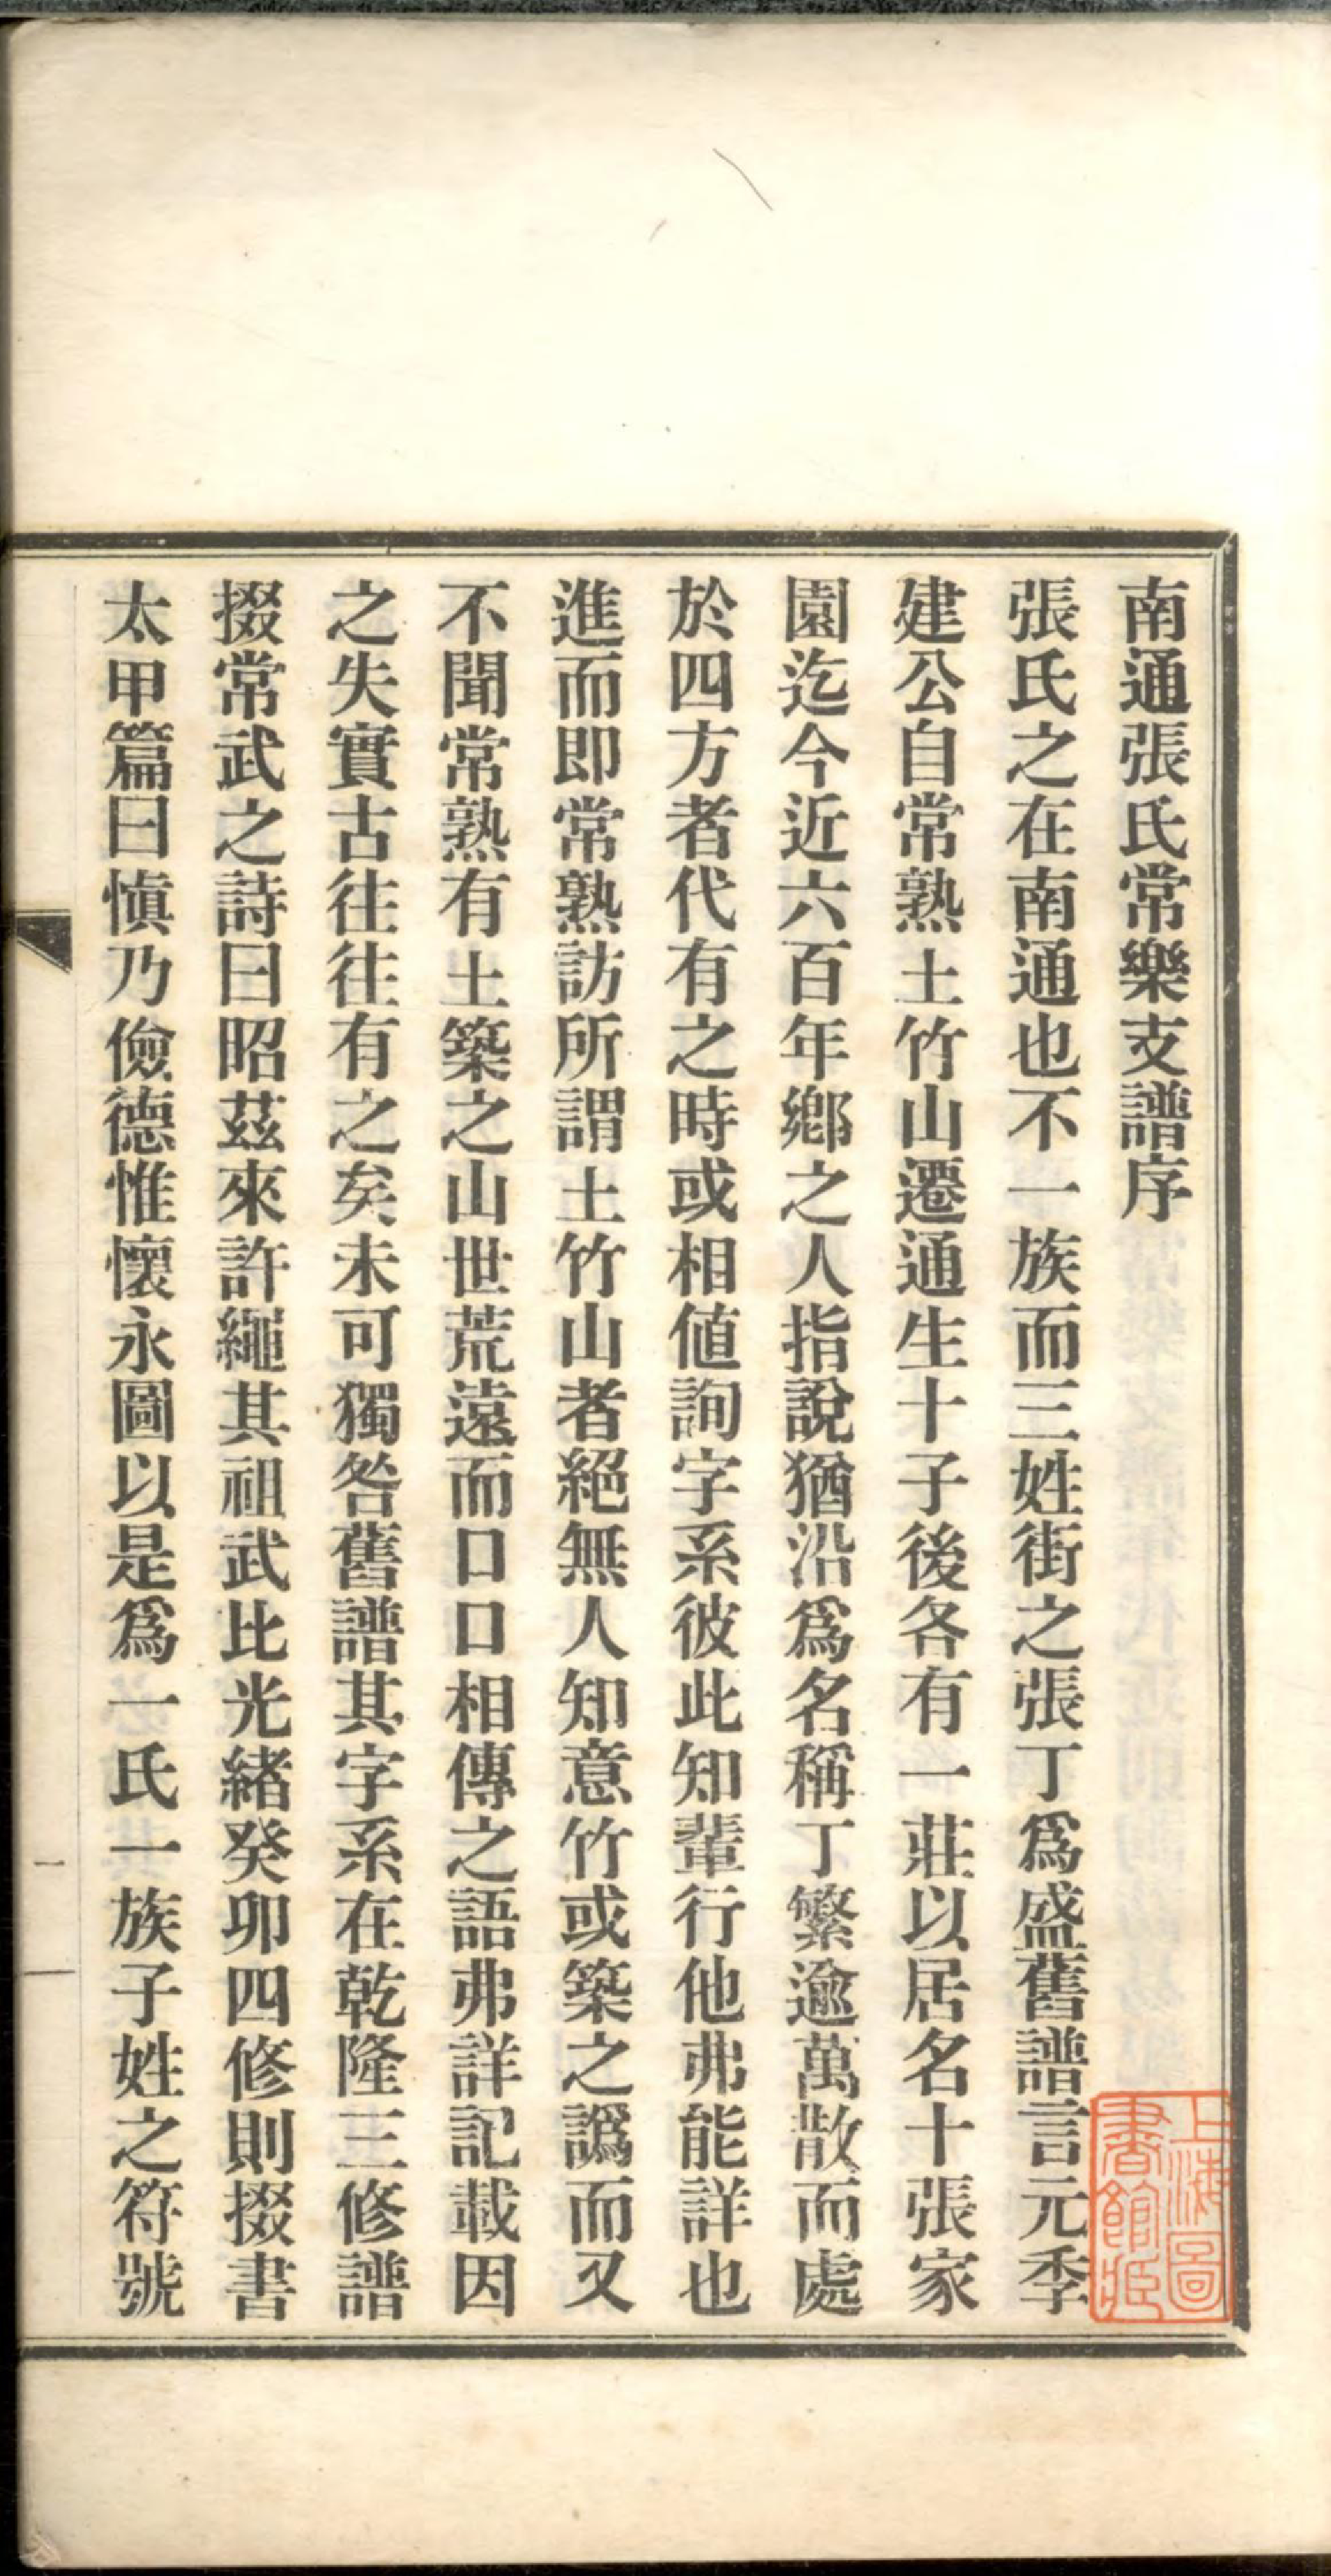 南通張氏常樂支譜序
張氏之在南通也不一族而三姓街之張丁爲盛舊譜言元季
建公自常熟土竹山遷通生十子後各有一莊以居名十張家
園迄今近六百年鄉之人指說猶沿爲名稱丁繁逾萬散而處
於四方者代有之時或相値詢字系彼此知輩行他弗能詳也
進而即常熟訪所謂土竹山者絕無人知意竹或築之譌而又
不聞常熟有土築之山世荒遠而口口相傳之語弗詳記載因
之失實古往往有之矣未可獨咎舊譜其字系在乾隆三修譜
掇常武之詩曰昭茲來許繩其祖武比光緒癸卯四修則掇書
太甲篇曰愼乃儉德惟懷永圖以是爲一氏一族子姓之符號
一
上海圖書館藏